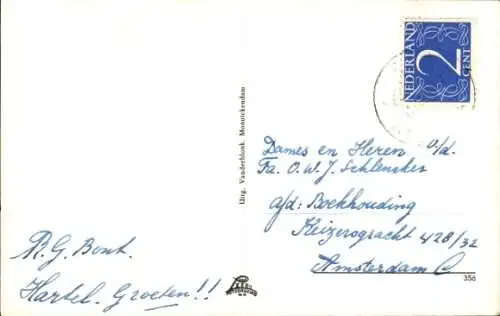 NEDERLAND
2
CENT
Dames en Heren o/d.
Fa. O.W.J. Schlencker
a/d: Boekhouding
Keizersgracht 428/32
Amsterdam C
R.G. Bont.
Hartel. Groeten!!
Uitg. Vanderblonk Monnickendam
356